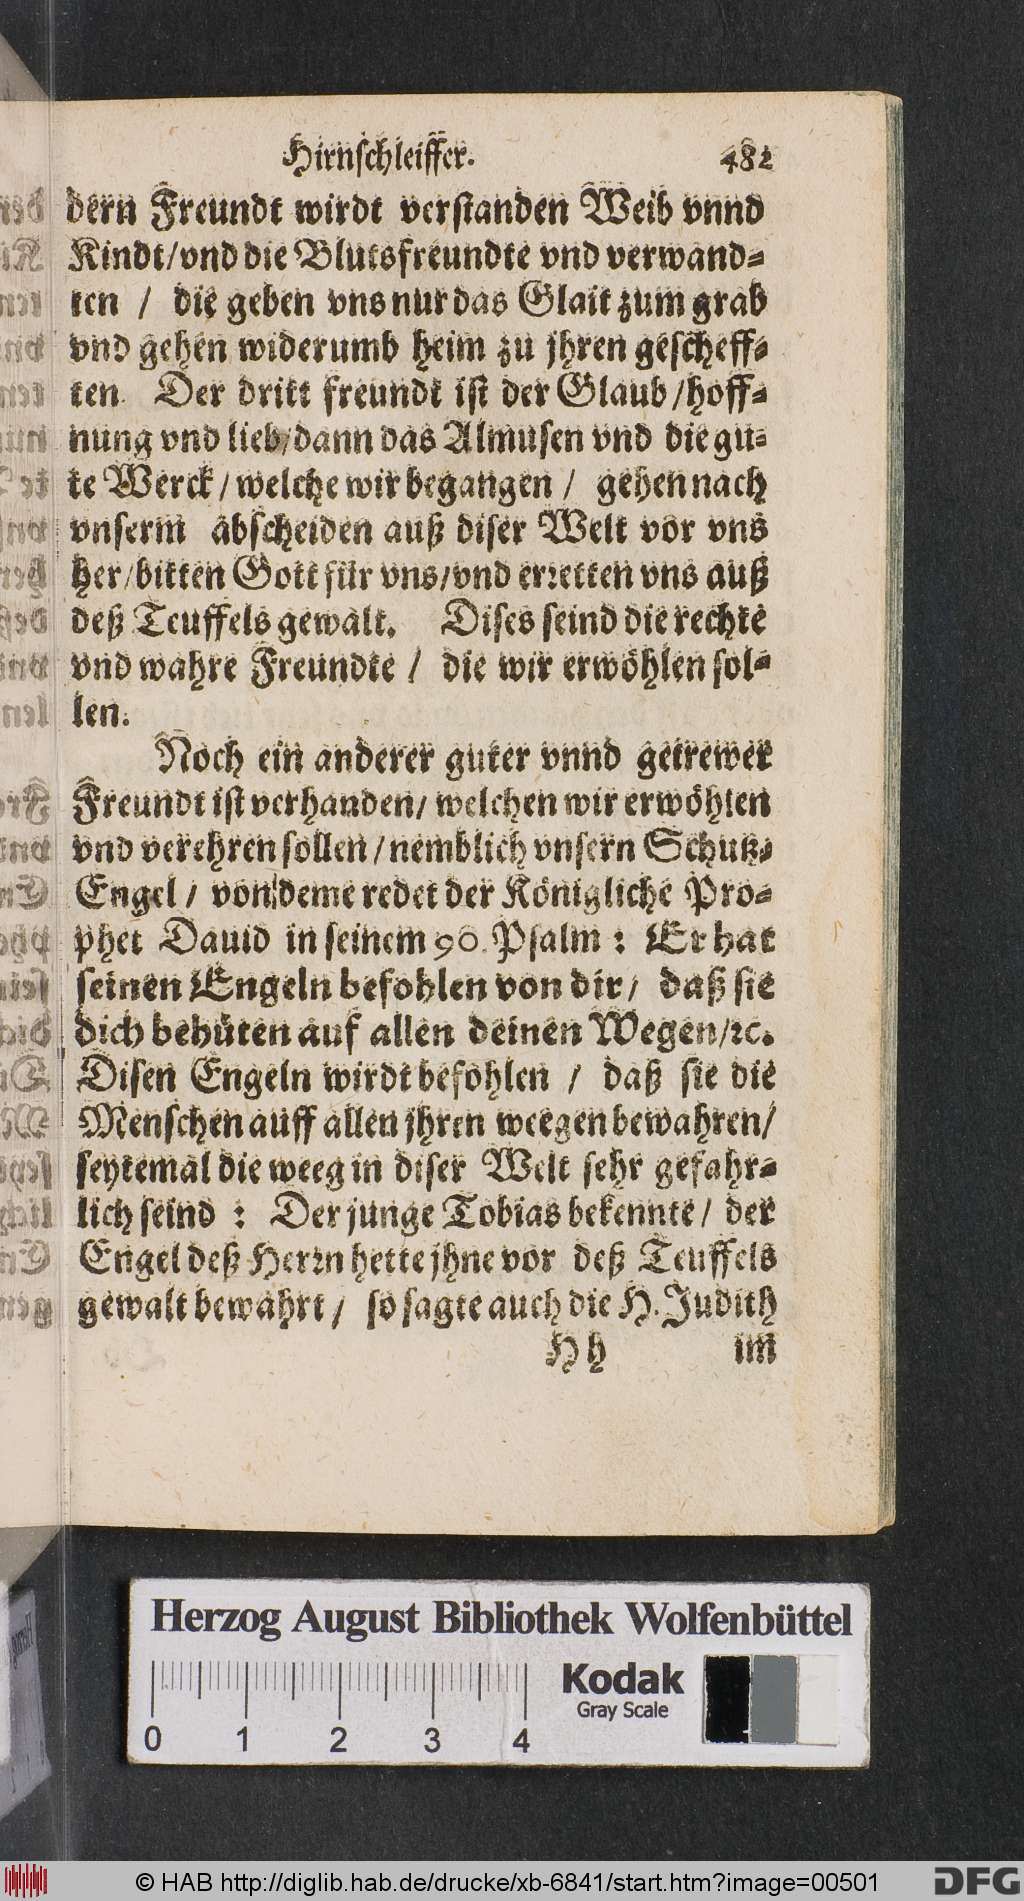 Hirnschleiffer. 481
dern Freundt wirdt verstanden Weib vnnd
Kindt/vnd die Blutsfreundte vnd verwand-
ten / die geben vns nur das Glait zum grab
vnd gehen widerumb heim zu jhren gescheff-
ten. Der dritt freundt ist der Glaub/hoff-
nung vnd lieb/dann das Almusen vnd die gu-
te Werck/welche wir begangen / gehen nach
vnserm abscheiden auß diser Welt vor vns
her/bitten Gott für vns/vnd erretten vns auß
deß Teuffels gewalt. Dises seind die rechte
vnd wahre Freundte / die wir erwöhlen sol-
len.
Noch ein anderer guter vnnd getrewer
Freundt ist verhanden/ welchen wir erwöhlen
vnd verehren sollen/nemblich vnsern Schutz-
Engel / von deme redet der Königliche Pro-
phet Dauid in seinem 90. Psalm : Er hat
seinen Engeln befohlen von dir/ daß sie
dich behüten auf allen deinen Wegen/ꝛc.
Disen Engeln wirdt befohlen / daß sie die
Menschen auff allen jhren weegen bewahren/
seytemal die weeg in diser Welt sehr gefahr-
lich seind : Der junge Tobias bekennte/ der
Engel deß Herrn hette jhne vor deß Teuffels
gewalt bewahrt/ so sagte auch die H. Judith
H h im
Herzog August Bibliothek Wolfenbüttel
Kodak
Gray Scale
0 1 2 3 4
© HAB http://diglib.hab.de/drucke/xb-6841/start.htm?image=00501
DFG